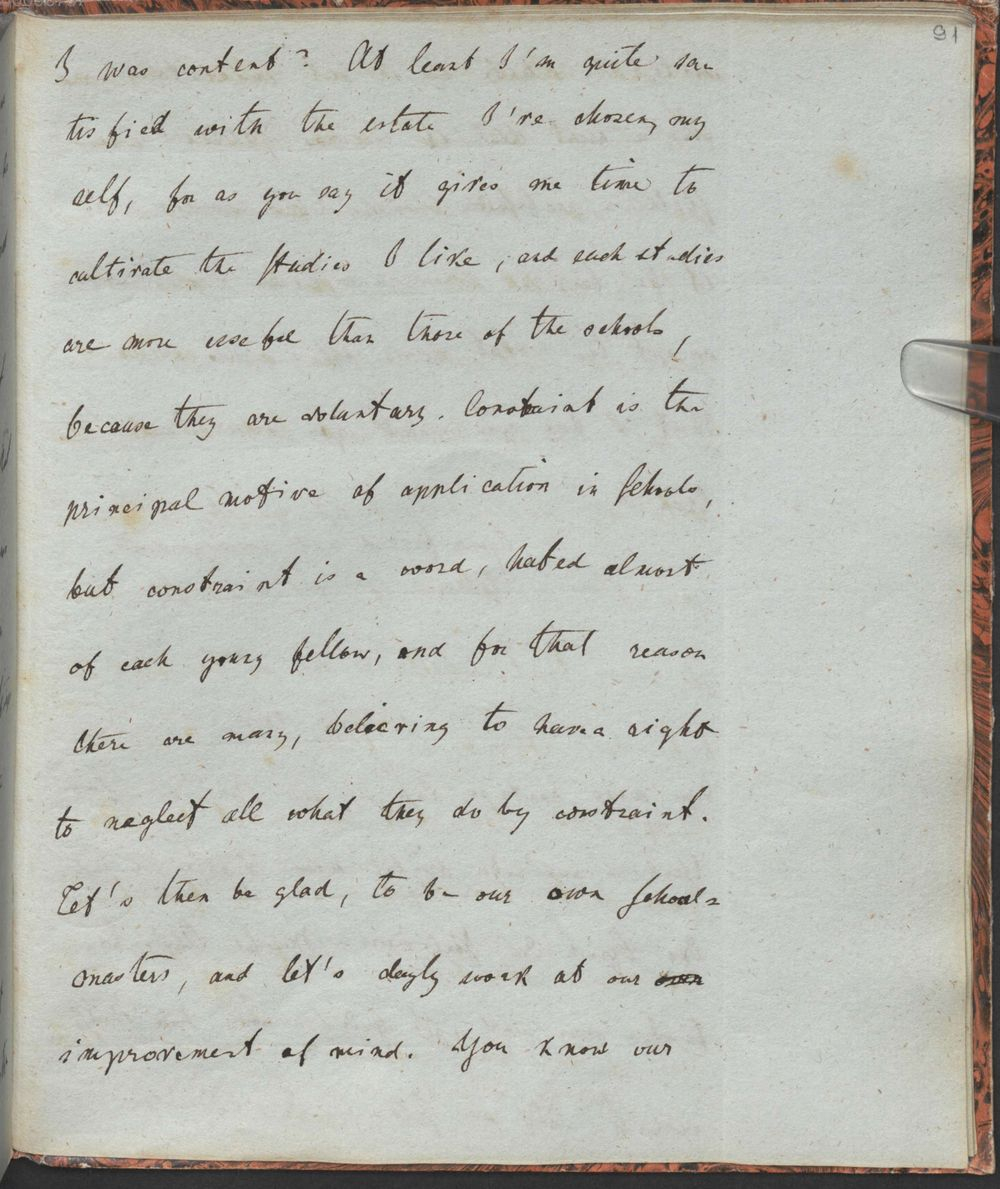 91
I was content? At least I'm quite sa
tisfied with the estate I've chosen, my
self, for as you say it gives me time to
cultivate the studies I like, and such studies
are more useful than those of the schools,
because they are voluntary. Constraint is the
principal motive of application in Schools,
but constraint is a word, hated almost
of each young fellow, and for that reason
there are many, believing to have a right
to neglect all what they do by constraint.
Let's then be glad, to be our own School=
masters, and let's dayly work at our own
improvement of mind. You know our